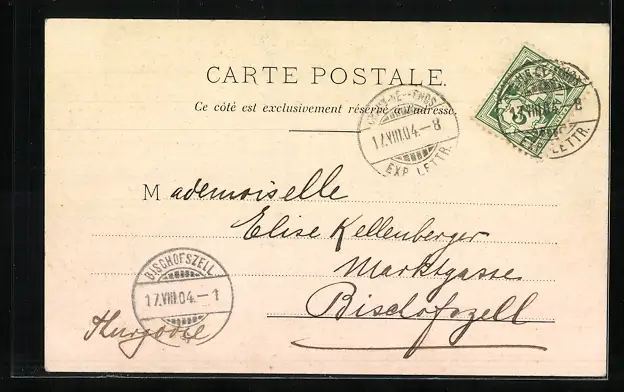 CARTE POSTALE.
Ce côté est exclusivement réservé à l'adresse.
17.VIII.04.-8
EXP. LETTR.
17.VIII.04.-8
LETTR.
5
Mademoiselle
Elise Kellenberger
Marktgasse
Bischofszell
BISCHOFSZELL
17.VIII.04.-1
Thurgovie